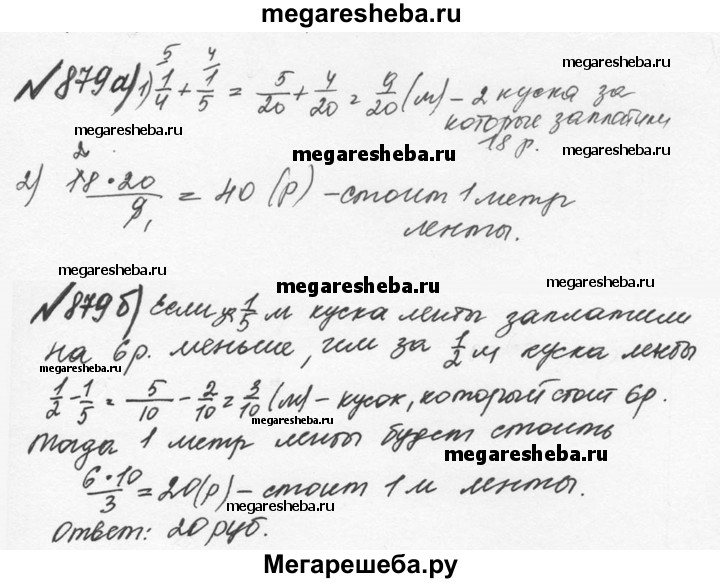 megaresheba.ru
megaresheba.ru
№879а) 1) 1/4 + 1/5 = 5/20 + 4/20 = 9/20 (м) – 2 куска за
megaresheba.ru
которые заплатили
18 р.
megaresheba.ru
megaresheba.ru
2) 18·20/9 = 40 (р) – стоит 1 метр
ленты.
megaresheba.ru
megaresheba.ru
№879б) Если за 1/5 м куска ленты заплатили
megaresheba.ru
на 6р. меньше, чем за 1/2 м куска ленты
megaresheba.ru
1/2 - 1/5 = 5/10 - 2/10 = 3/10 (м) – кусок, который стоит 6р.
megaresheba.ru
Тогда 1 метр ленты будет стоить
megaresheba.ru
6·10/3 = 20(р) – стоит 1 м ленты.
megaresheba.ru
Ответ: 20 руб.
Мегарешеба.ру